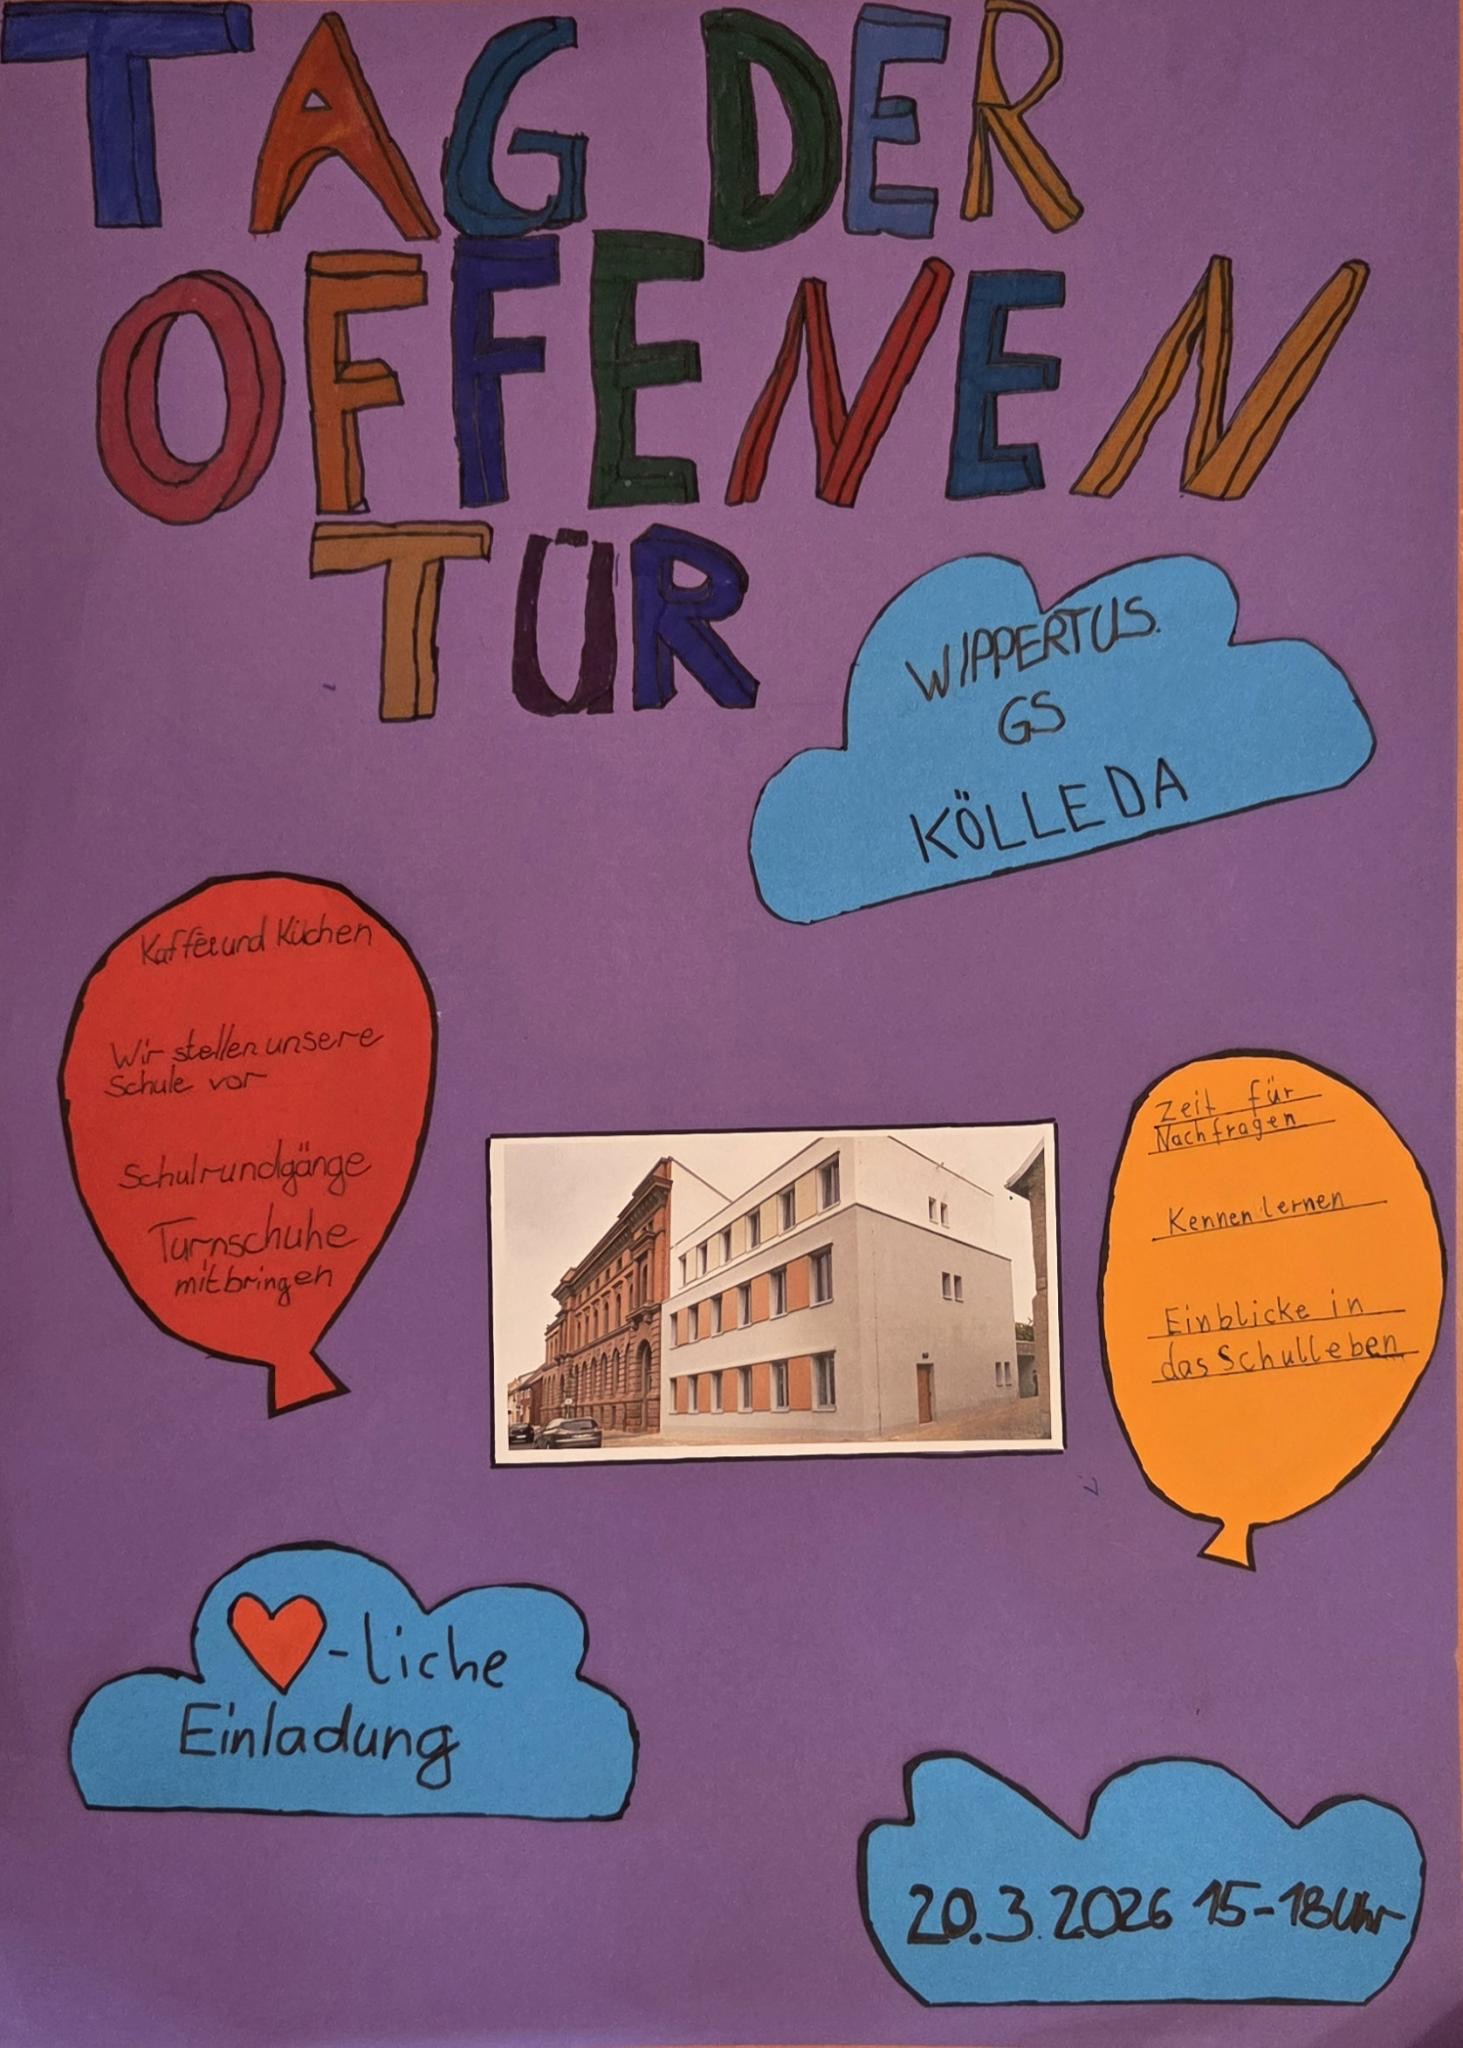 TAG DER
OFFENEN
TÜR
WIPPERTUS.
GS
KÖLLEDA
Kaffee und Kuchen
Wir stellen unsere
Schule vor
Schulrundgänge
Turnschuhe
mitbringen
Zeit für
Nachfragen
Kennen lernen
Einblicke in
das Schulleben
-liche
Einladung
20.3.2026 15-18Uhr